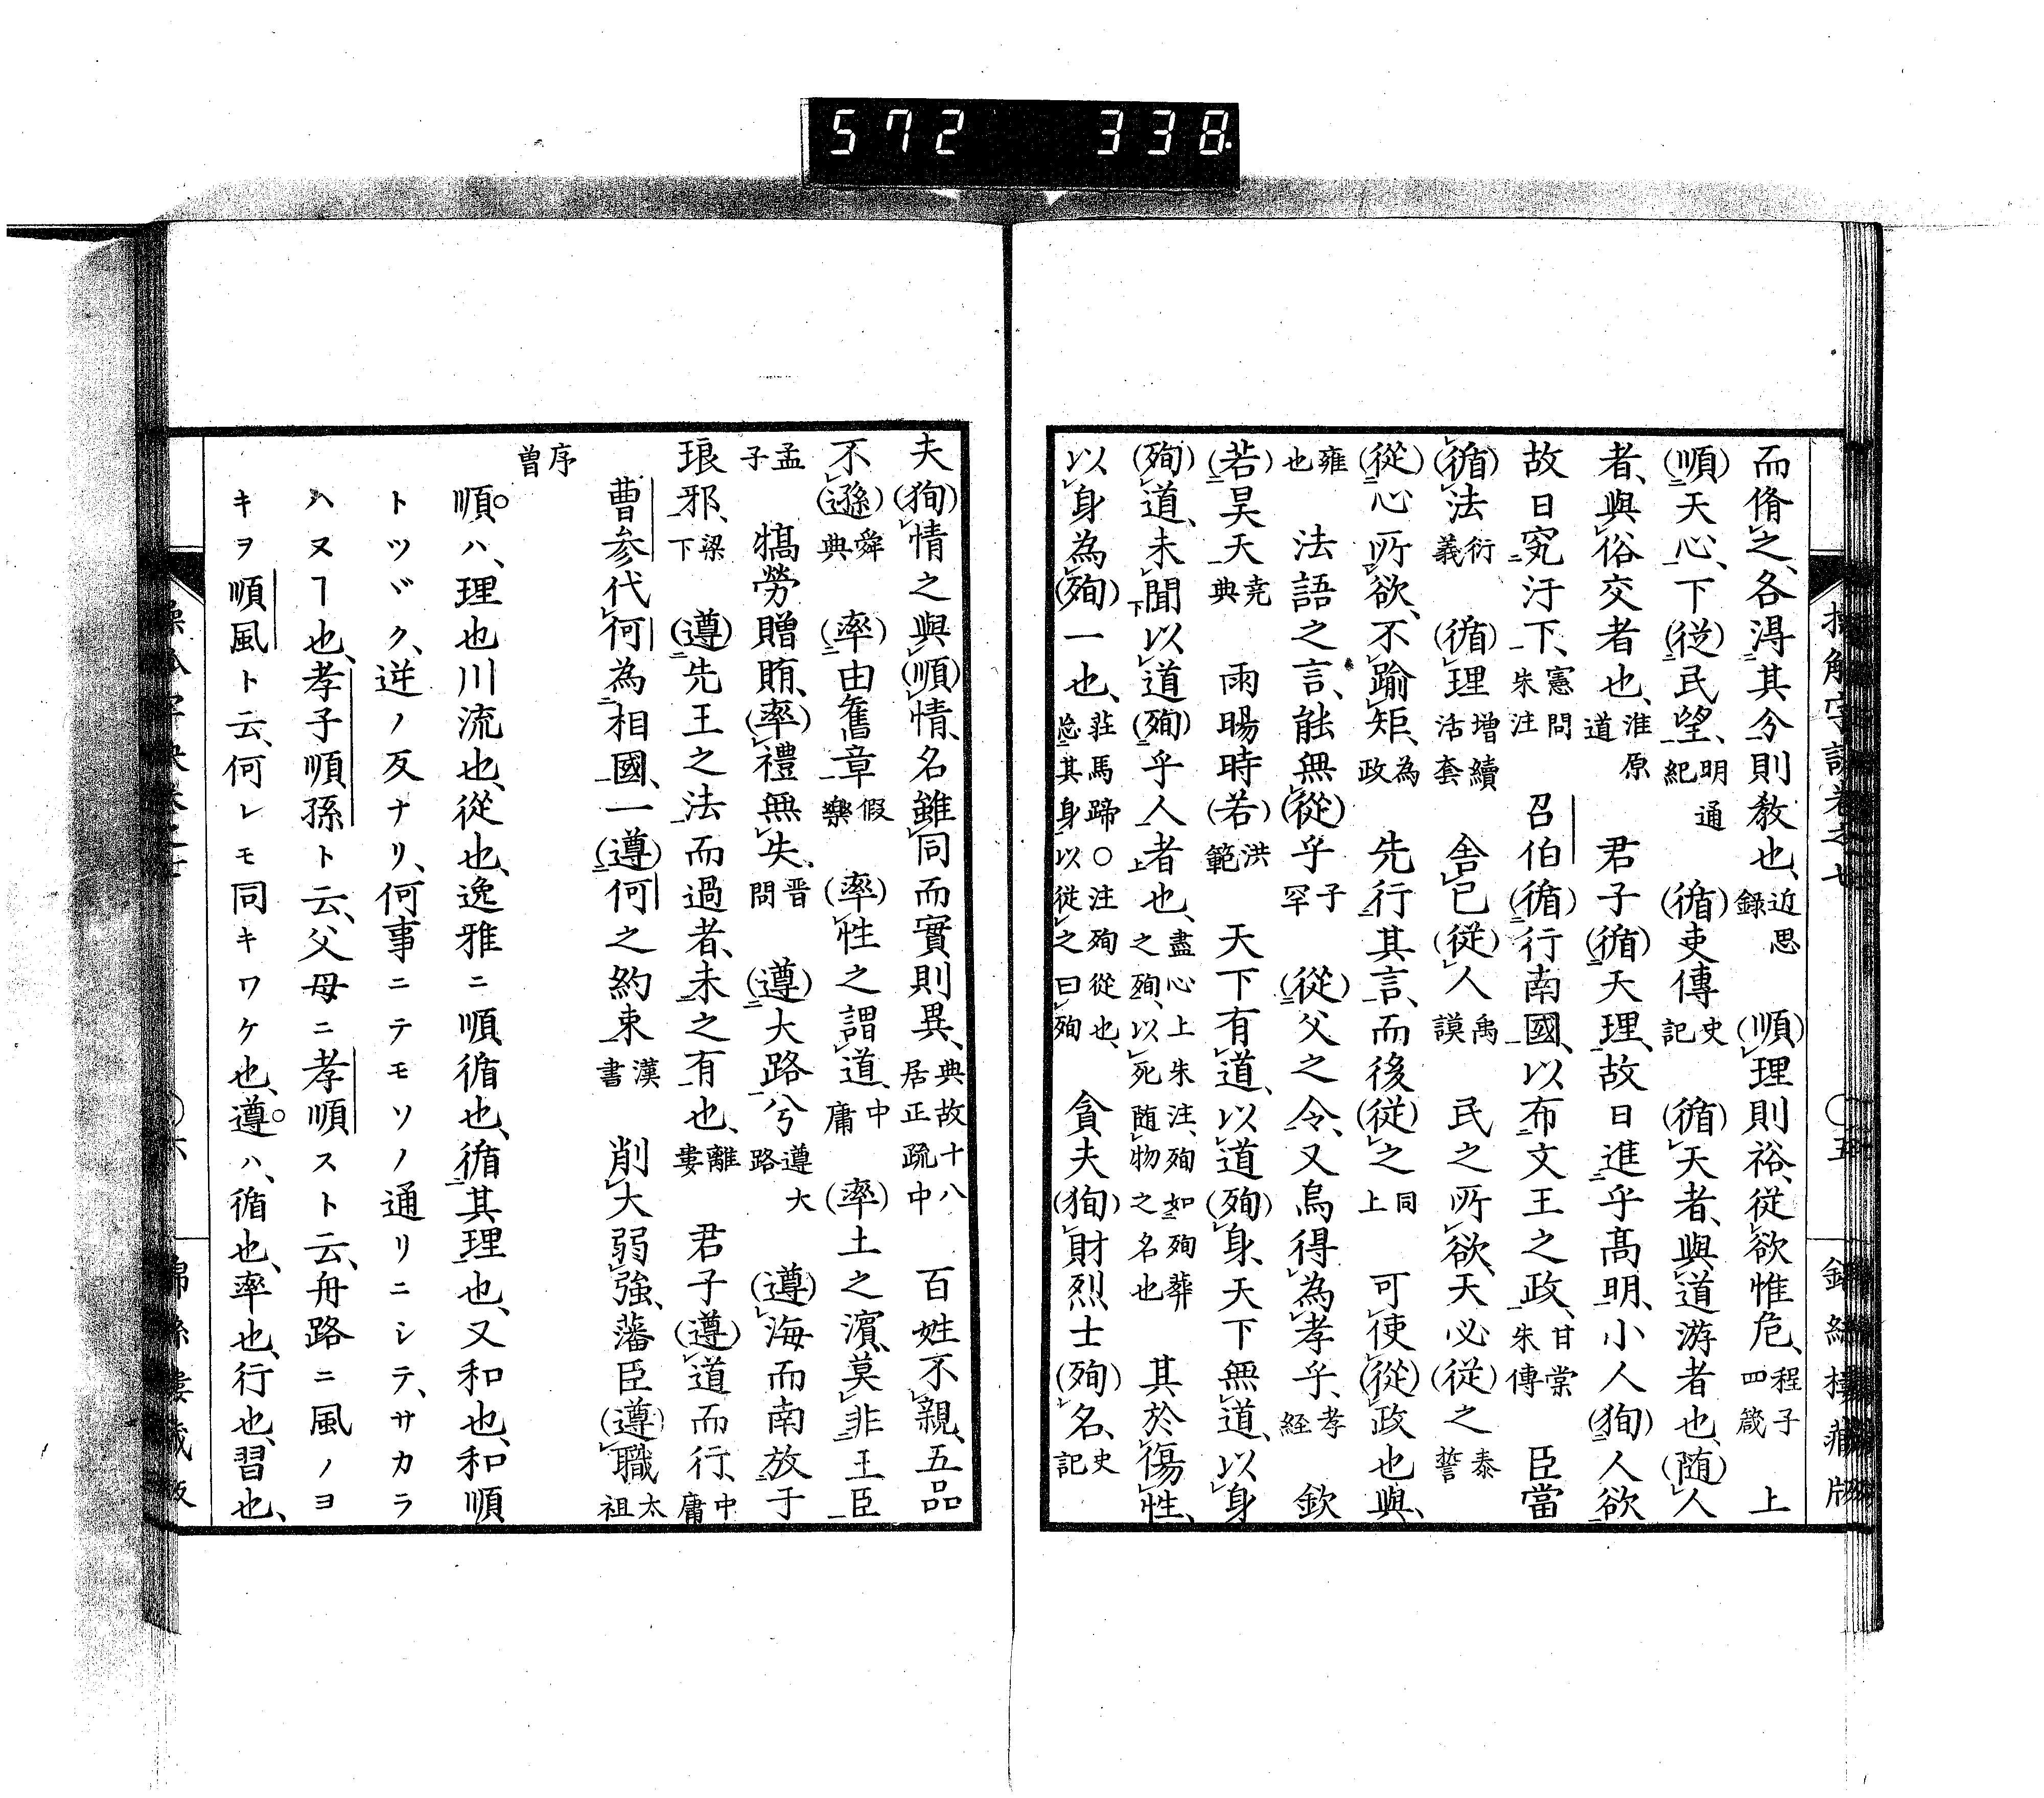 572 338
而脩之、各淂其分則敎也、近思錄 (順)理則裕、從欲惟危、程子四箴 上
(順)天心、下(従)民望、明紀 通 (循)吏傳史記 (循)天者、與道游者也、(随)人
者、與俗交者也、淮原道 君子(循)天理、故日進乎髙明、小人(狥)人欲
故日究汙下、憲問朱注 召伯(循)行南國、以布文王之政、甘棠朱傳 臣當
(循)法衍義 (循)理增續活套 舎己(従)人禹謨 民之所欲、天必(従)之泰誓
(從)心所欲、不踰矩、為政 先行其言、而後(従)之同上 可使(從)政也與、
雍也 法語之言、能無(從)乎子罕 (從)父之令、又烏得為孝乎、孝経 欽
(若)昊天堯典 雨暘時(若)洪範 天下有道、以道(殉)身、天下無道、以身
(殉)道、未聞以道(殉)乎人者也、盡心上朱注、殉如殉葬之殉、以死随物之名也 其於傷性、
以身為(殉)一也、莊馬蹄○注殉從也、㤀其身以従之曰殉 貪夫(狥)財烈士(殉)名、史記
夫(狥)情之與(順)情、名雖同而實則異、典故十八居正疏中 百姓不親、五品
不(遜)舜典 (率)由舊章假樂 (率)性之謂道、中庸 (率)土之濱、莫非王臣
孟子 犒勞贈賄、(率)禮無失、晋問 (遵)大路兮遵大路 (遵)海而南放于
琅邪、梁下 (遵)先王之法而過者、未之有也、離婁 君子(遵)道而行、中庸
曹参代何為相國、一(遵)何之約束漢書 削大弱強、藩臣(遵)職太祖
序曽
順ハ、理也川流也、從也、逸雅ニ順循也、循其理也、又和也、和順
トツヾク、逆ノ反ナリ、何事ニテモソノ通リニシテ、サカラ
ハヌヿ也、孝子順孫ト云、父母ニ孝順スト云、舟路ニ風ノヨ
キヲ順風ト云、何レモ同キワケ也、遵ハ、循也、率也、行也、習也、